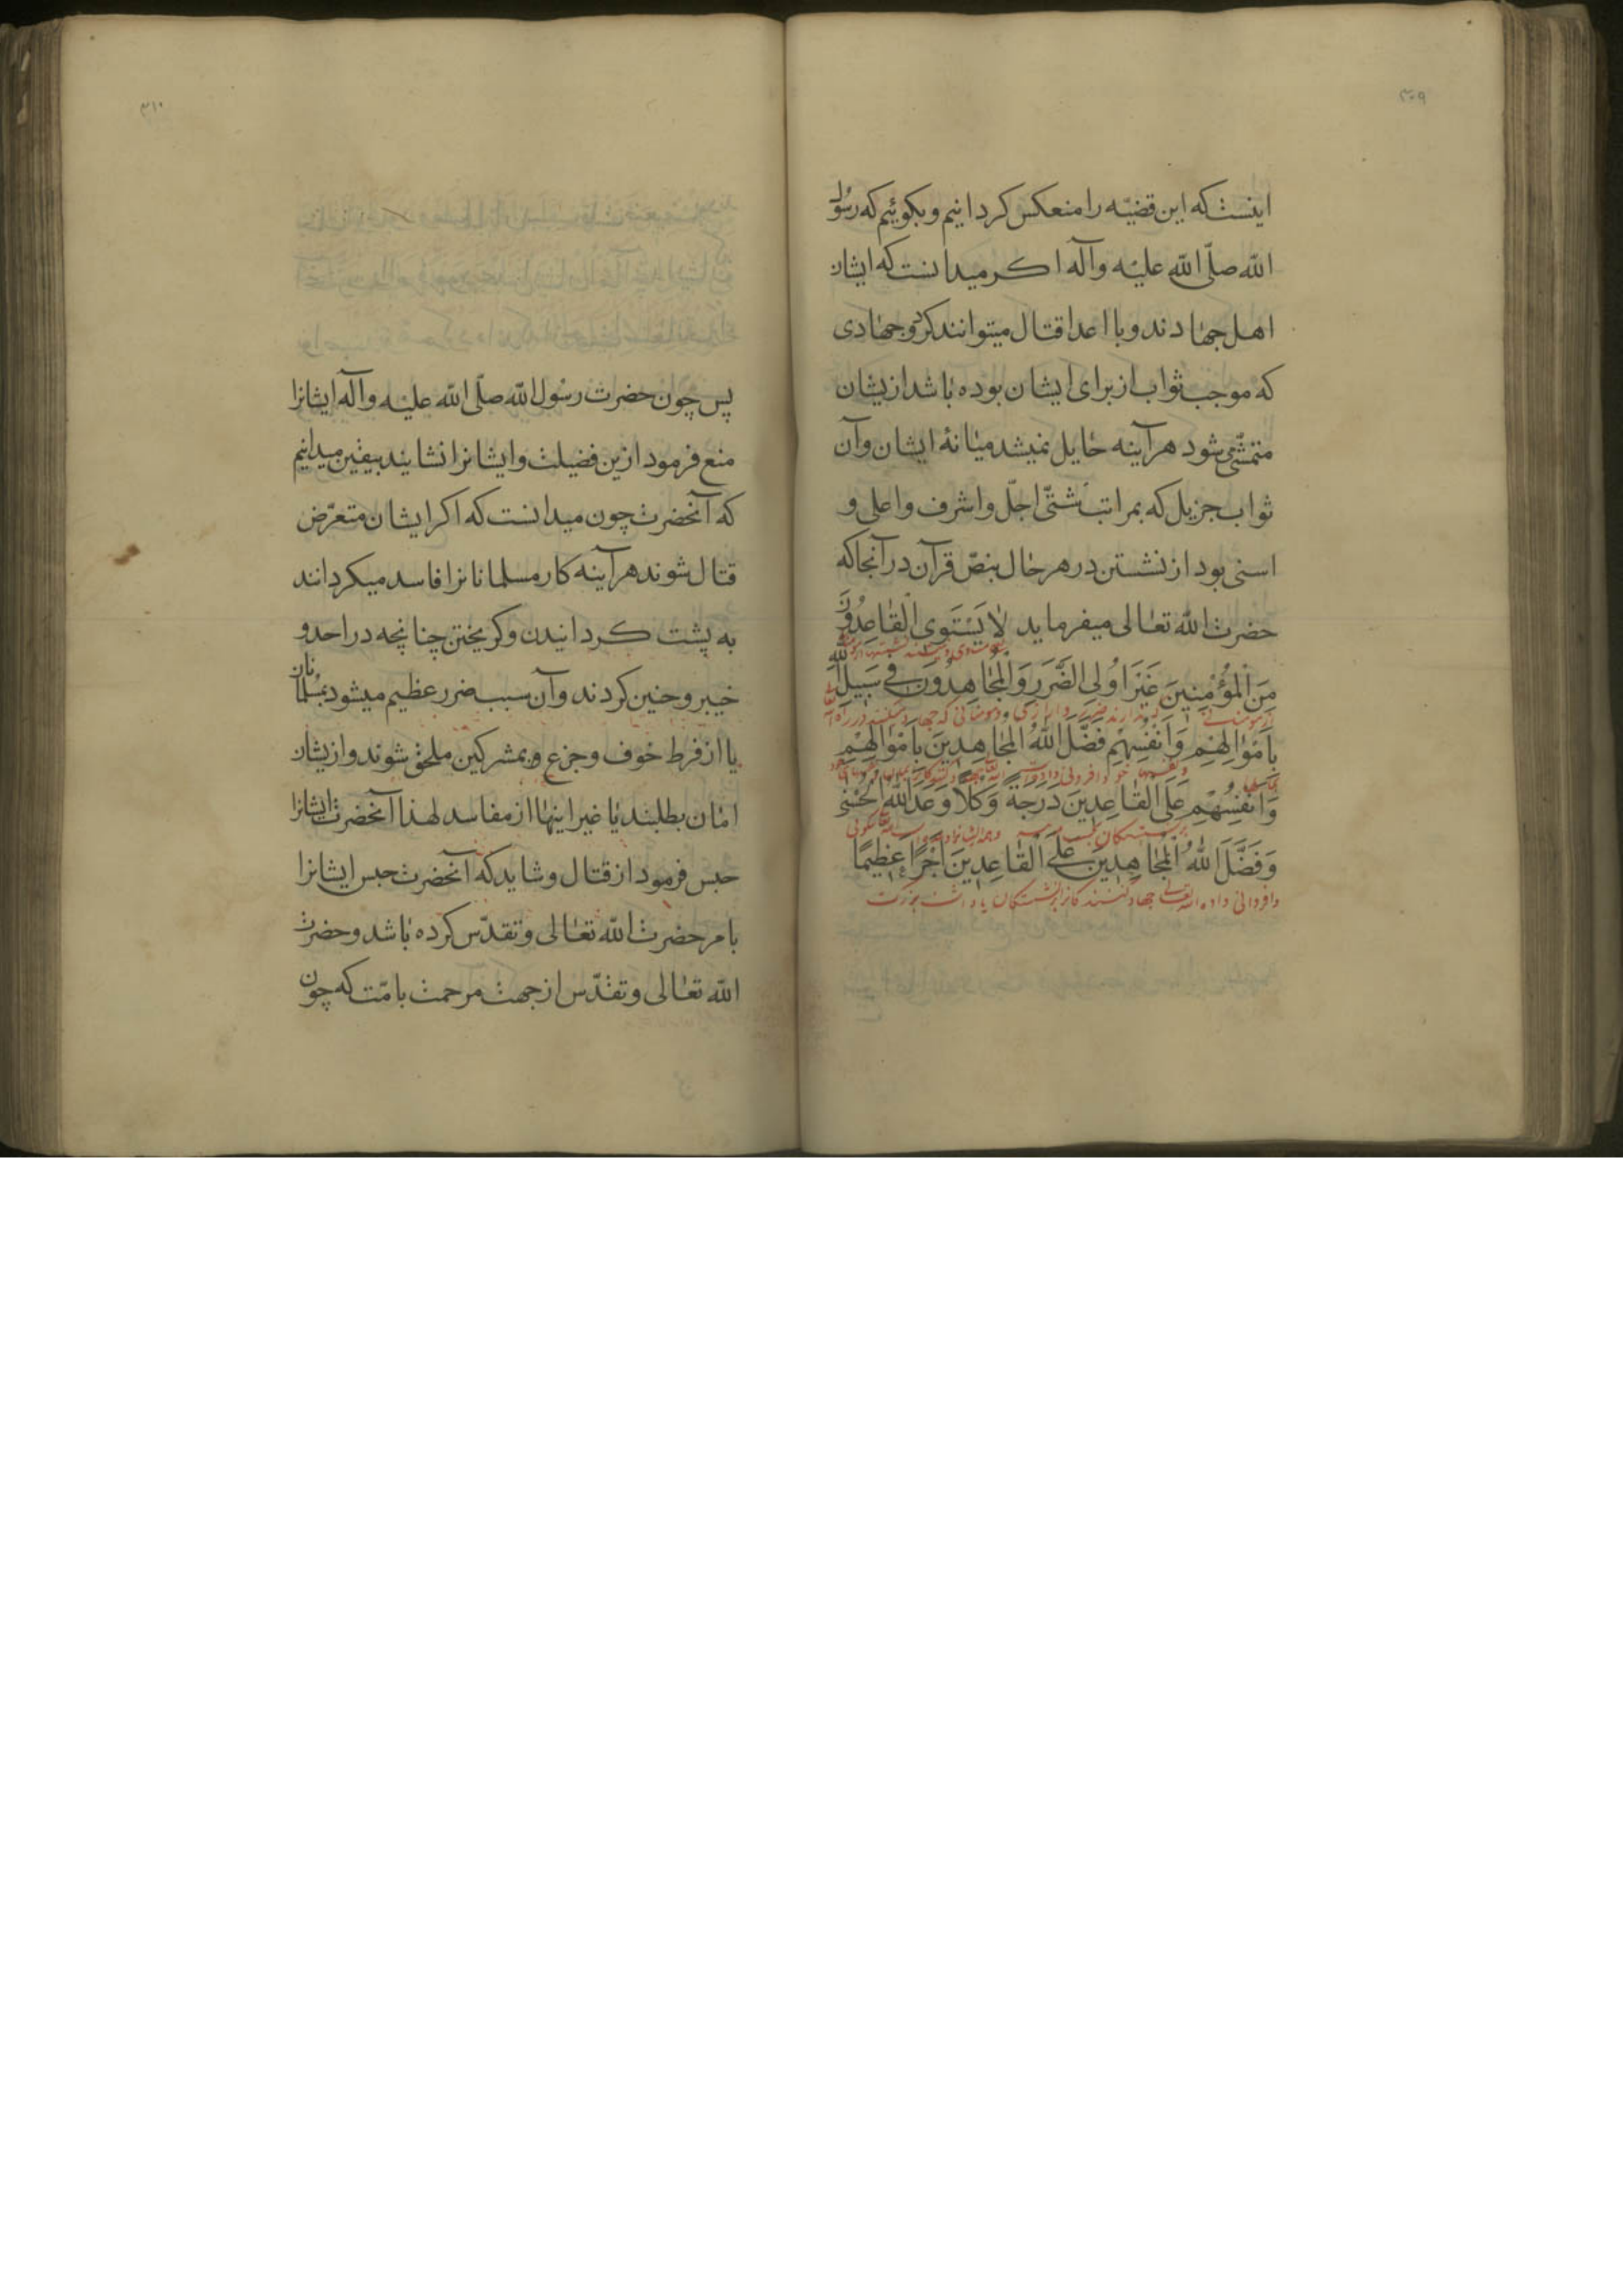 ۳۰۹
اینست که این قضیّه را منعکس کردانیم و بکوئیم که رسول
الله صلّی الله علیه وآله اکر میدانست که ایشان
اهل جهادند و با اعدا قتال میتوانند کرد و جهادی
که موجب ثواب از برای ایشان بوده باشد ازیشان
متمشّی شود هرآینه حایل نمیشد میانهٔ ایشان وآن
ثواب جزیل که بمراتب شتّی اجلّ و اشرف و اعلی و
اسنی بود از نشستن در هر حال بنصّ قرآن در آنجا که
حضرت الله تعالی میفرماید لَا يَسْتَوِي الْقَاعِدُونَ
مِنَ الْمُؤْمِنِينَ غَيْرَ اُولِي الضَّرَرِ وَالْمُجَاهِدُونَ فِي سَبِيلِ اللهِ
از مومنان و مومنانی که جهاد میکنند در راه
بِاَمْوَالِهِمْ وَاَنْفُسِهِمْ فَضَّلَ اللهُ الْمُجَاهِدِينَ بِاَمْوَالِهِمْ
وَاَنْفُسِهِمْ عَلَى الْقَاعِدِينَ دَرَجَةً وَكُلًّا وَعَدَ اللهُ الْحُسْنَى
وَفَضَّلَ اللهُ الْمُجَاهِدِينَ عَلَى الْقَاعِدِينَ اَجْرًا عَظِيمًا
داده الله تعالی جهاد کنندکانرا بر نشستکان
۳۱۰
پس چون حضرت رسول الله صلّی الله علیه وآله ایشانرا
منع فرمود ازین فضیلت و ایشانرا نشایند بیقین میدانیم
که آنحضرت چون میدانست که اکر ایشان متعرّض
قتال شوند هرآینه کار مسلمانانرا فاسد میکردانند
به پشت کردانیدن و کریختن چنانچه در احد و
خیبر و حنین کردند وآن سبب ضرر عظیم میشود بمسلمانان
یا از فرط خوف و جزع و بمشرکین ملحق شوند و ازیشان
امان بطلبند یا غیر اینها از مفاسد لهذا آنحضرت ایشانرا
حبس فرمود از قتال و شاید که آنحضرت حبس ایشانرا
بامر حضرت الله تعالی و تقدّس کرده باشد و حضرت
الله تعالی و تقدّس از جهت مرحمت بامّت که چون